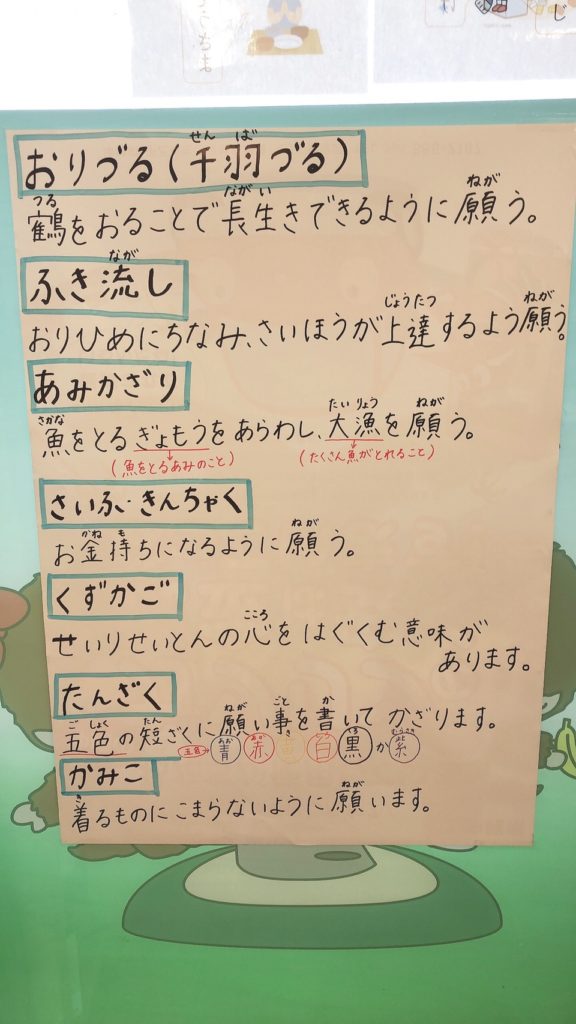 おりづる(千羽づる)
鶴をおることで長生きできるように願う。
ふき流し
おりひめにちなみ、さいほうが上達するよう願う。
あみかざり
魚をとるぎょもうをあらわし、大漁を願う。
(魚をとるあみのこと) (たくさん魚がとれること)
さいふ・きんちゃく
お金持ちになるように願う。
くずかご
せいりせいとんの心をはぐくむ意味が
あります。
たんざく
五色の短ざくに願い事を書いてかざります。
五色→青 赤 黄 白 黒か紫
かみこ
着るものにこまらないように願います。